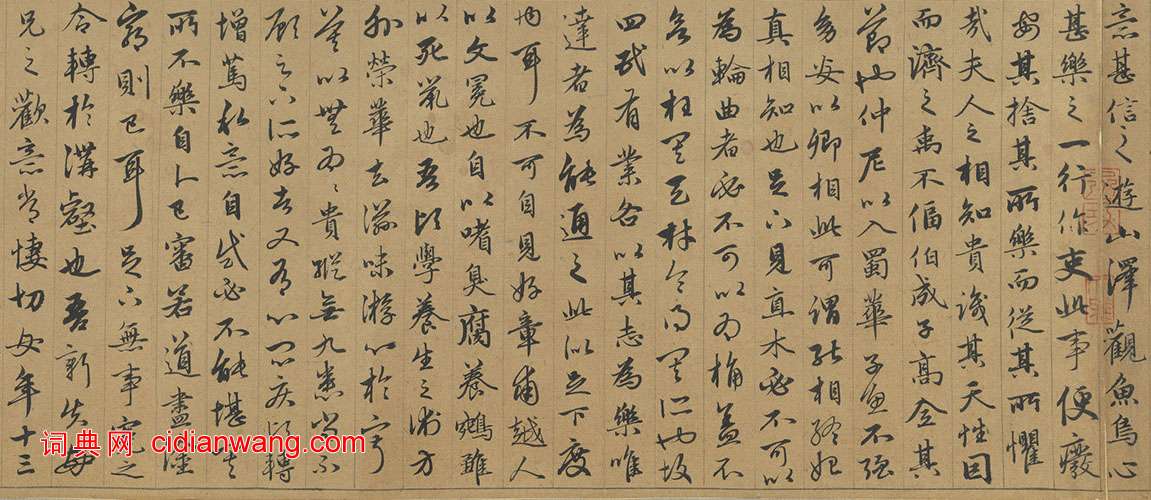 意甚信之遊山澤觀魚鳥心
甚樂之一行作吏此事便癈
安其捨其所樂而從其所懼
哉夫人之相知貴識其天性因
而濟之禹不偪伯成子高全其
節也仲尼以入蜀華子魚不強
幼安以卿相此可謂能相終始
真相知也足下見直木必不可以
為輪曲者必不可以為桷蓋不
欲以枉其天材令得其所也故
四民有業各以其志為樂唯
達者為能通之此以足下度
內耳不可自見好章甫越人
以文冕也自以嗜臭腐養鵷雛
以死鼠也吾頃學養生之術方
外榮華去滋味游心於寂
莫以無為〻貴縱無九患尚不
顧足下所好者又有心悶疾頃轉
增篤私意自試必不能堪其
所不樂自卜已審若道盡塗
窮則已耳足下無事冤之
令轉於溝壑也吾新失母
兄之歡意常悽切女年十三
词典网 cidianwang.com